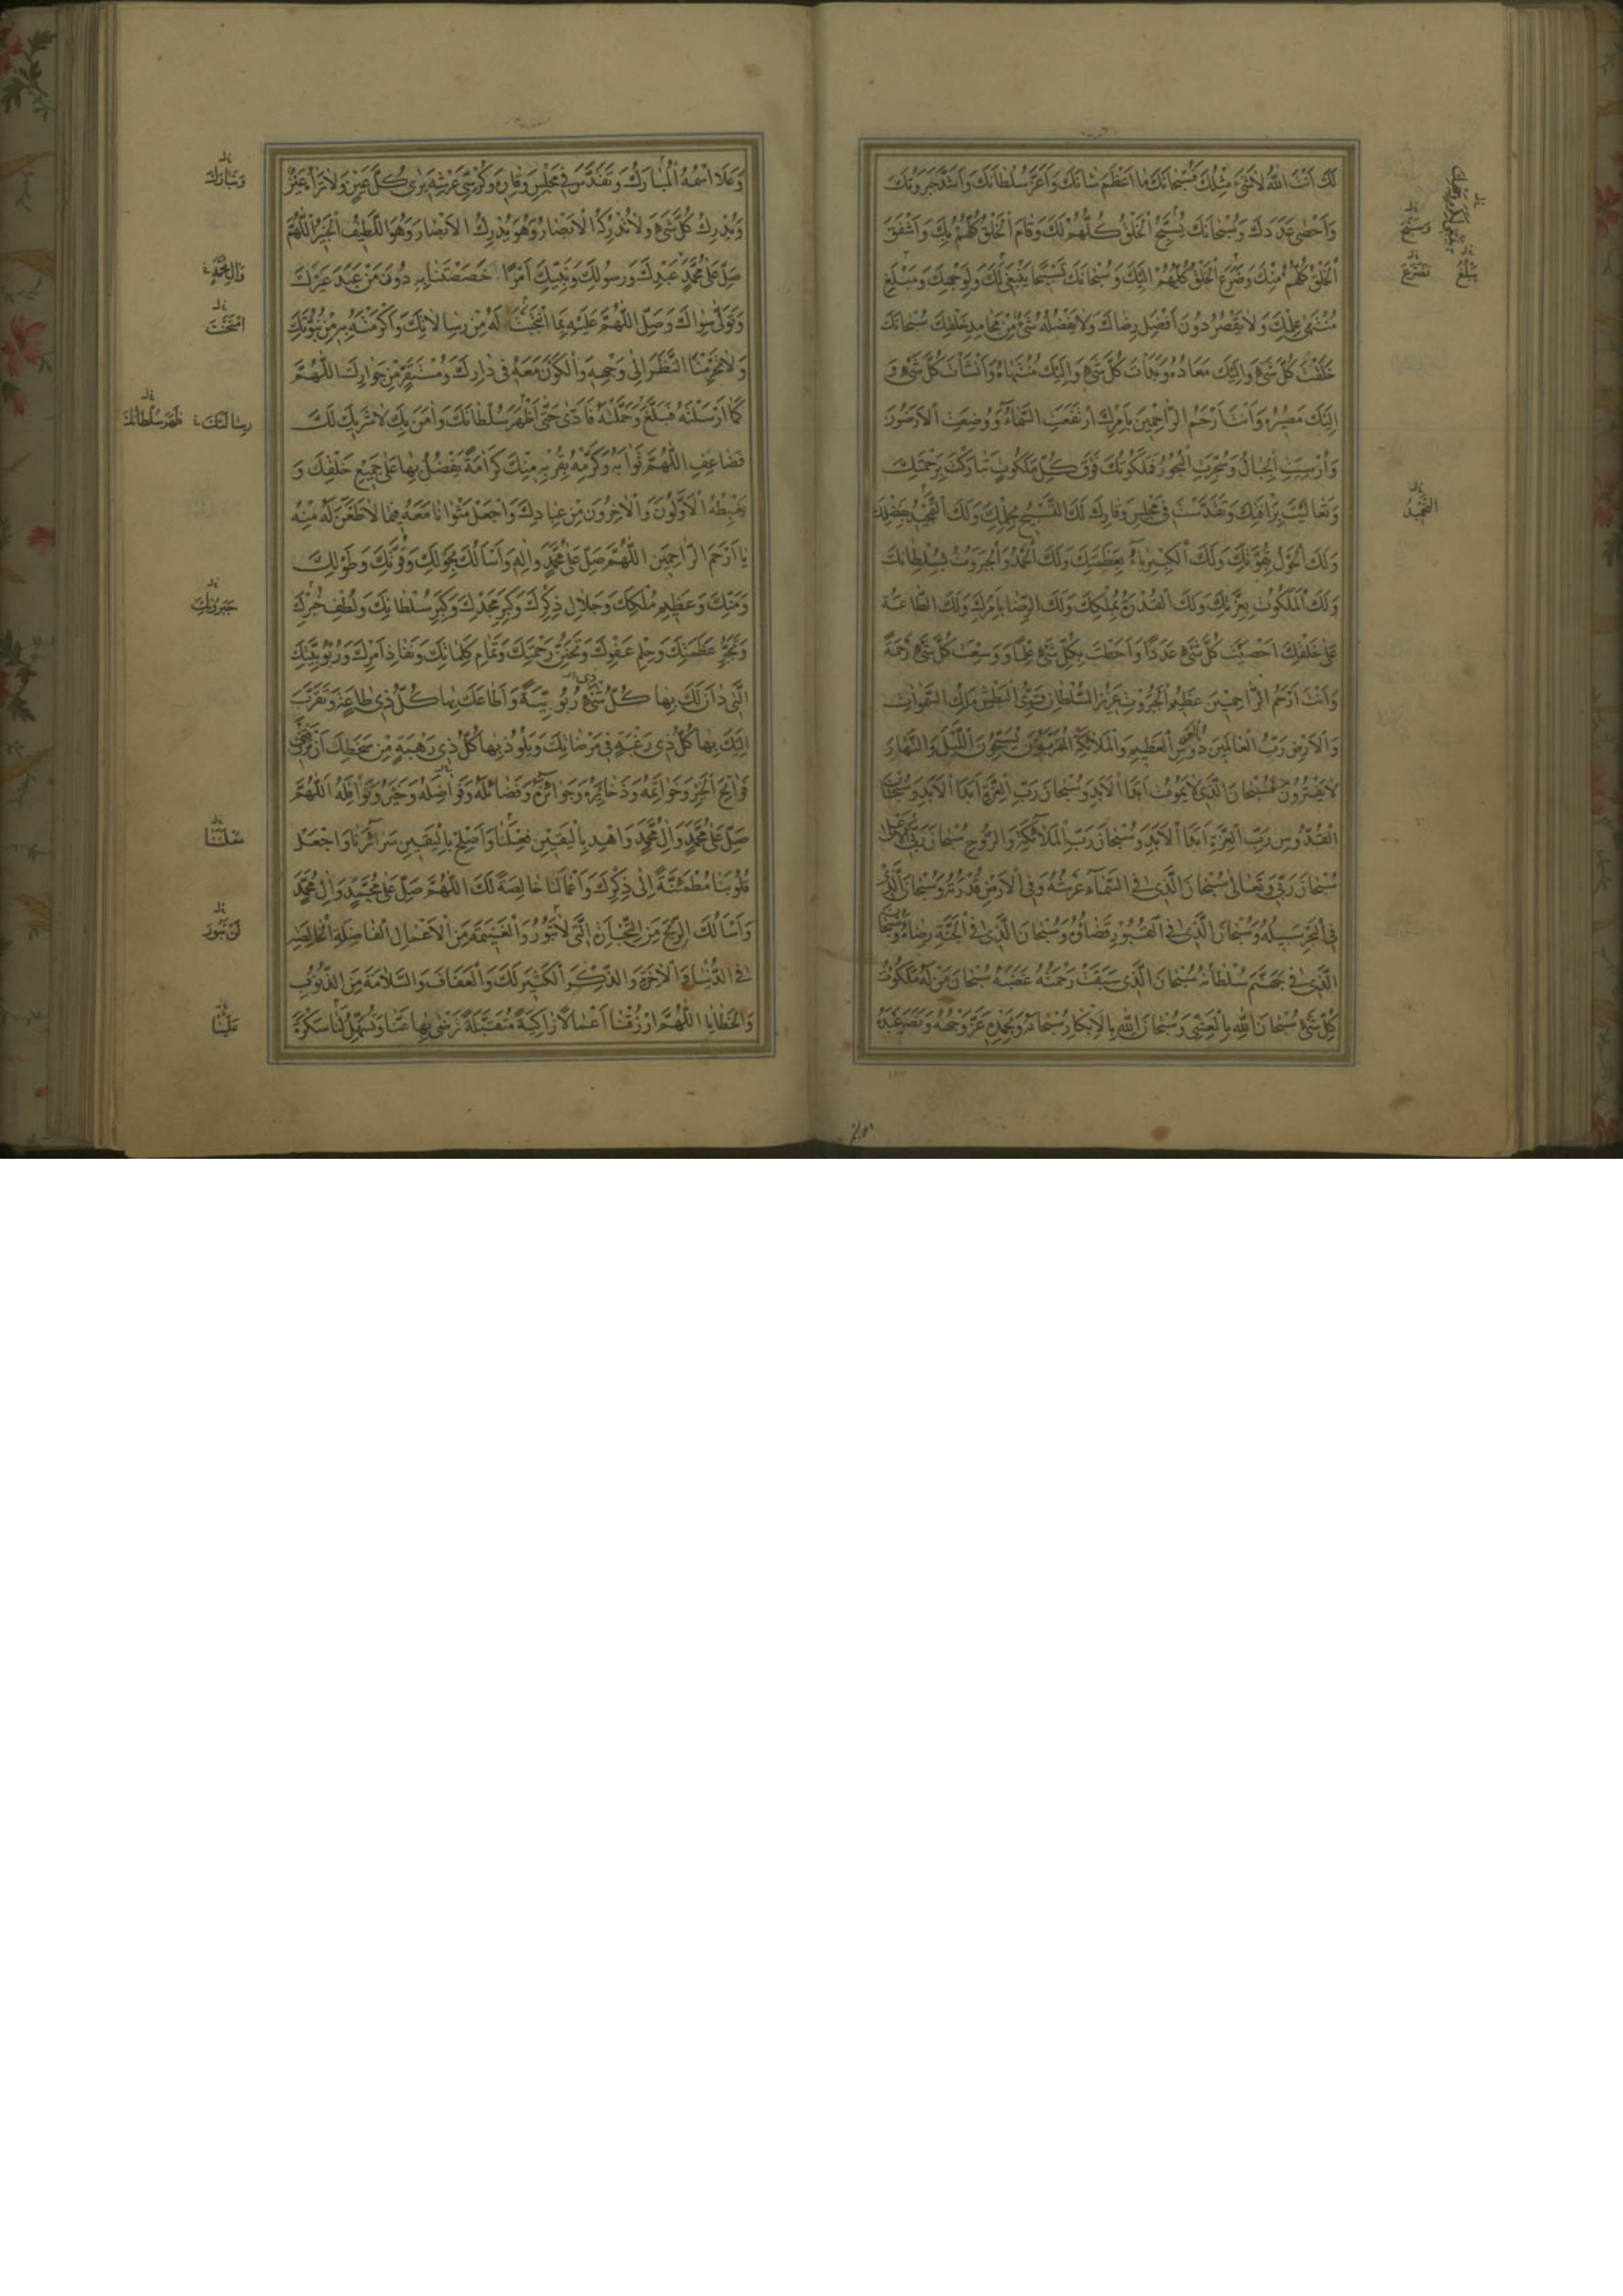 لَكَ اَنْتَ اللّٰهُ لَا شَيْءَ مِثْلُكَ فَسُبْحَانَكَ مَا اَعْظَمَ شَانَكَ وَاَعَزَّ سُلْطَانَكَ وَاَشَدَّ جَبَرُوتَكَ
وَاَحْصٰى عَدَدَكَ وَسُبْحَانَكَ يُسَبِّحُ الْخَلْقُ كُلُّهُمْ لَكَ وَقَامَ الْخَلْقُ كُلُّهُمْ بِكَ وَاَشْفَقَ
الْخَلْقُ كُلُّهُمْ مِنْكَ وَضَرَعَ الْخَلْقُ كُلُّهُمْ اِلَيْكَ وَسُبْحَانَكَ تَسْبِيحًا يَنْبَغِي لَكَ وَلِوَجْهِكَ وَمَبْلَغَ
مُنْتَهٰى عِلْمِكَ وَلَا يَقْصُرُ دُونَ اَفْضَلِ رِضَاكَ وَلَا يَفْضُلُهُ شَيْءٌ مِنْ مَحَامِدِ خَلْقِكَ سُبْحَانَكَ
خَلَقْتَ كُلَّ شَيْءٍ وَاِلَيْكَ مَعَادُهُ وَبَدَأْتَ كُلَّ شَيْءٍ وَاِلَيْكَ مُنْتَهَاهُ وَاَنْشَأْتَ كُلَّ شَيْءٍ وَ
اِلَيْكَ مَصِيرُهُ وَاَنْتَ اَرْحَمُ الرَّاحِمِينَ بِاَمْرِكَ ارْتَفَعَتِ السَّمَاءُ وَوُضِعَتِ الْاَرَضُونَ
وَاُرْسِيَتِ الْجِبَالُ وَسُجِّرَتِ الْبُحُورُ فَمَلَكُوتُكَ فَوْقَ كُلِّ مَلَكُوتٍ تَبَارَكْتَ بِرَحْمَتِكَ
وَتَعَالَيْتَ بِرَأْفَتِكَ وَتَقَدَّسْتَ فِي مَجْلِسِ وَقَارِكَ لَكَ التَّسْبِيحُ بِحِلْمِكَ وَلَكَ التَّمْجِيدُ بِفَضْلِكَ
وَلَكَ الْحَوْلُ بِقُوَّتِكَ وَلَكَ الْكِبْرِيَاءُ بِعَظَمَتِكَ وَلَكَ الْحَمْدُ وَالْجَبَرُوتُ بِسُلْطَانِكَ
وَلَكَ الْمَلَكُوتُ بِعِزَّتِكَ وَلَكَ الْقُدْرَةُ بِمُلْكِكَ وَلَكَ الرِّضَا بِاَمْرِكَ وَلَكَ الطَّاعَةُ
عَلٰى خَلْقِكَ اَحْصَيْتَ كُلَّ شَيْءٍ عَدَدًا وَاَحَطْتَ بِكُلِّ شَيْءٍ عِلْمًا وَوَسِعْتَ كُلَّ شَيْءٍ رَحْمَةً
وَاَنْتَ اَرْحَمُ الرَّاحِمِينَ عَظِيمُ الْجَبَرُوتِ عَزِيزُ السُّلْطَانِ قَوِيُّ الْبَطْشِ مَلِكُ السَّمٰوَاتِ
وَالْاَرْضِ رَبُّ الْعَالَمِينَ ذُو الْعَرْشِ الْعَظِيمِ وَالْمَلَائِكَةِ الْمُقَرَّبِينَ يُسَبِّحُونَ اللَّيْلَ وَالنَّهَارَ
لَا يَفْتُرُونَ فَسُبْحَانَ الَّذِي لَا يَمُوتُ اَبَدَ الْاَبَدِ وَسُبْحَانَ رَبِّ الْعِزَّةِ اَبَدَ الْاَبَدِ وَسُبْحَانَ
الْقُدُّوسِ رَبِّ الْعِزَّةِ اَبَدَ الْاَبَدِ وَسُبْحَانَ رَبِّ الْمَلَائِكَةِ وَالرُّوحِ سُبْحَانَ رَبِّيَ الْاَعْلٰى
سُبْحَانَ رَبِّي وَتَعَالٰى سُبْحَانَ الَّذِي فِي السَّمَاءِ عَرْشُهُ وَفِي الْاَرْضِ قُدْرَتُهُ وَسُبْحَانَ الَّذِي
فِي الْبَحْرِ سَبِيلُهُ وَسُبْحَانَ الَّذِي فِي الْقُبُورِ قَضَاؤُهُ وَسُبْحَانَ الَّذِي فِي الْجَنَّةِ رِضَاهُ وَسُبْحَانَ
الَّذِي فِي جَهَنَّمَ سُلْطَانُهُ سُبْحَانَ الَّذِي سَبَقَتْ رَحْمَتُهُ غَضَبَهُ سُبْحَانَ مَنْ لَهُ مَلَكُوتُ
كُلِّ شَيْءٍ سُبْحَانَ اللّٰهِ بِالْعَشِيِّ وَسُبْحَانَ اللّٰهِ بِالْاِبْكَارِ سُبْحَانَهُ وَبِحَمْدِهِ عَزَّ وَجْهُهُ وَنَصَرَ عَبْدَهُ
وَيُسَبِّحُ
تَضَرَّعَ
يَبْلُغُ
التَّحْمِيدُ
وَعَلَا اسْمُهُ الْمُبَارَكُ وَتَقَدَّسَ فِي مَجْلِسِ وَقَارِهِ وَكُرْسِيِّ عَرْشِهِ يَرٰى كُلَّ عَيْنٍ وَلَا تَرَاهُ عَيْنٌ
وَيُدْرِكُ كُلَّ شَيْءٍ وَلَا تُدْرِكُهُ الْاَبْصَارُ وَهُوَ يُدْرِكُ الْاَبْصَارَ وَهُوَ اللَّطِيفُ الْخَبِيرُ اللّٰهُمَّ
صَلِّ عَلٰى مُحَمَّدٍ عَبْدِكَ وَرَسُولِكَ وَنَبِيِّكَ اَمْرًا خَصَصْتَنَا بِهِ دُونَ مَنْ عَبَدَ غَيْرَكَ
وَتَوَلّٰى سِوَاكَ وَصَلِّ اللّٰهُمَّ عَلَيْهِ بِمَا انْتَجَبْتَ لَهُ مِنْ رِسَالَاتِكَ وَاَكْرَمْتَهُ بِهِ مِنْ نُبُوَّتِكَ
وَلَا تَحْرِمْنَا النَّظَرَ اِلٰى وَجْهِهِ وَالْكَوْنَ مَعَهُ فِي دَارِكَ وَمُسْتَقَرٍّ مِنْ جِوَارِكَ اللّٰهُمَّ
كَمَا اَرْسَلْتَهُ فَبَلَّغَ وَحَمَّلْتَهُ فَاَدّٰى حَتّٰى اَظْهَرَ سُلْطَانَكَ وَاٰمَنَ بِكَ لَا شَرِيكَ لَكَ
فَضَاعِفِ اللّٰهُمَّ ثَوَابَهُ وَكَرِّمْهُ بِقُرْبِهِ مِنْكَ كَرَامَةً يَفْضُلُ بِهَا عَلٰى جَمِيعِ خَلْقِكَ وَ
يَغْبِطُهُ الْاَوَّلُونَ وَالْاٰخِرُونَ مِنْ عِبَادِكَ وَاجْعَلْ مَثْوَانَا مَعَهُ فِيمَا لَا ظَعْنَ لَهُ مِنْهُ
يَا اَرْحَمَ الرَّاحِمِينَ اللّٰهُمَّ صَلِّ عَلٰى مُحَمَّدٍ وَاٰلِهِ وَاَسْاَلُكَ بِحَوْلِكَ وَقُوَّتِكَ وَطَوْلِكَ
وَمَنِّكَ وَعَظِيمِ مُلْكِكَ وَجَلَالِ ذِكْرِكَ وَكِبَرِ مَجْدِكَ وَكِبَرِ سُلْطَانِكَ وَلُطْفِ جَبْرِكَ
وَتَجَبُّرِ عَظَمَتِكَ وَحِلْمِ عَفْوِكَ وَتَحَنُّنِ رَحْمَتِكَ وَتَمَامِ كَلِمَاتِكَ وَنَفَاذِ اَمْرِكَ وَرُبُوبِيَّتِكَ
الَّتِي دَانَ لَكَ بِهَا كُلُّ شَيْءٍ رُبُوبِيَّةً وَاَطَاعَكَ بِهَا كُلُّ ذِي طَاعَةٍ وَتَقَرَّبَ
اِلَيْكَ بِهَا كُلُّ ذِي رَغْبَةٍ فِي مَرْضَاتِكَ وَيَلُوذُ بِهَا كُلُّ ذِي رَهْبَةٍ مِنْ سَخَطِكَ اَنْ تَرْزُقَنِي
فَوَاتِحَ الْخَيْرِ وَخَوَاتِمَهُ وَذَخَائِرَهُ وَجَوَائِزَهُ وَفَضَائِلَهُ وَفَوَاضِلَهُ وَخَيْرَهُ وَنَوَافِلَهُ اللّٰهُمَّ
صَلِّ عَلٰى مُحَمَّدٍ وَاٰلِ مُحَمَّدٍ وَاهْدِ بِالْيَقِينِ فِعْلَنَا وَاَصْلِحْ بِالْيَقِينِ سَرَائِرَنَا وَاجْعَلْ
قُلُوبَنَا مُطْمَئِنَّةً اِلٰى ذِكْرِكَ وَاَعْمَالَنَا خَالِصَةً لَكَ اللّٰهُمَّ صَلِّ عَلٰى مُحَمَّدٍ وَاٰلِ مُحَمَّدٍ
وَاَسْاَلُكَ الرِّبْحَ مِنَ التِّجَارَةِ الَّتِي لَا تَبُورُ وَالْغَنِيمَةَ مِنَ الْاَعْمَالِ الْفَاضِلَةِ الْخَالِصَةِ
فِي الدُّنْيَا وَالْاٰخِرَةِ وَالذِّكْرَ الْكَثِيرَ لَكَ وَالْعَفَافَ وَالسَّلَامَةَ مِنَ الذُّنُوبِ
وَالْخَطَايَا اللّٰهُمَّ ارْزُقْنَا اَعْمَالًا زَاكِيَةً مُتَقَبَّلَةً تَرْضٰى بِهَا عَنَّا وَتُسَهِّلُ لَنَا سَكْرَةَ
وَتَبَارَكَ
وَاٰلِ مُحَمَّدٍ
رِسَالَتَكَ ظَهَرَ سُلْطَانُكَ
جَبَرُوتِكَ
لَنْ تَبُورَ
عَلَيْنَا